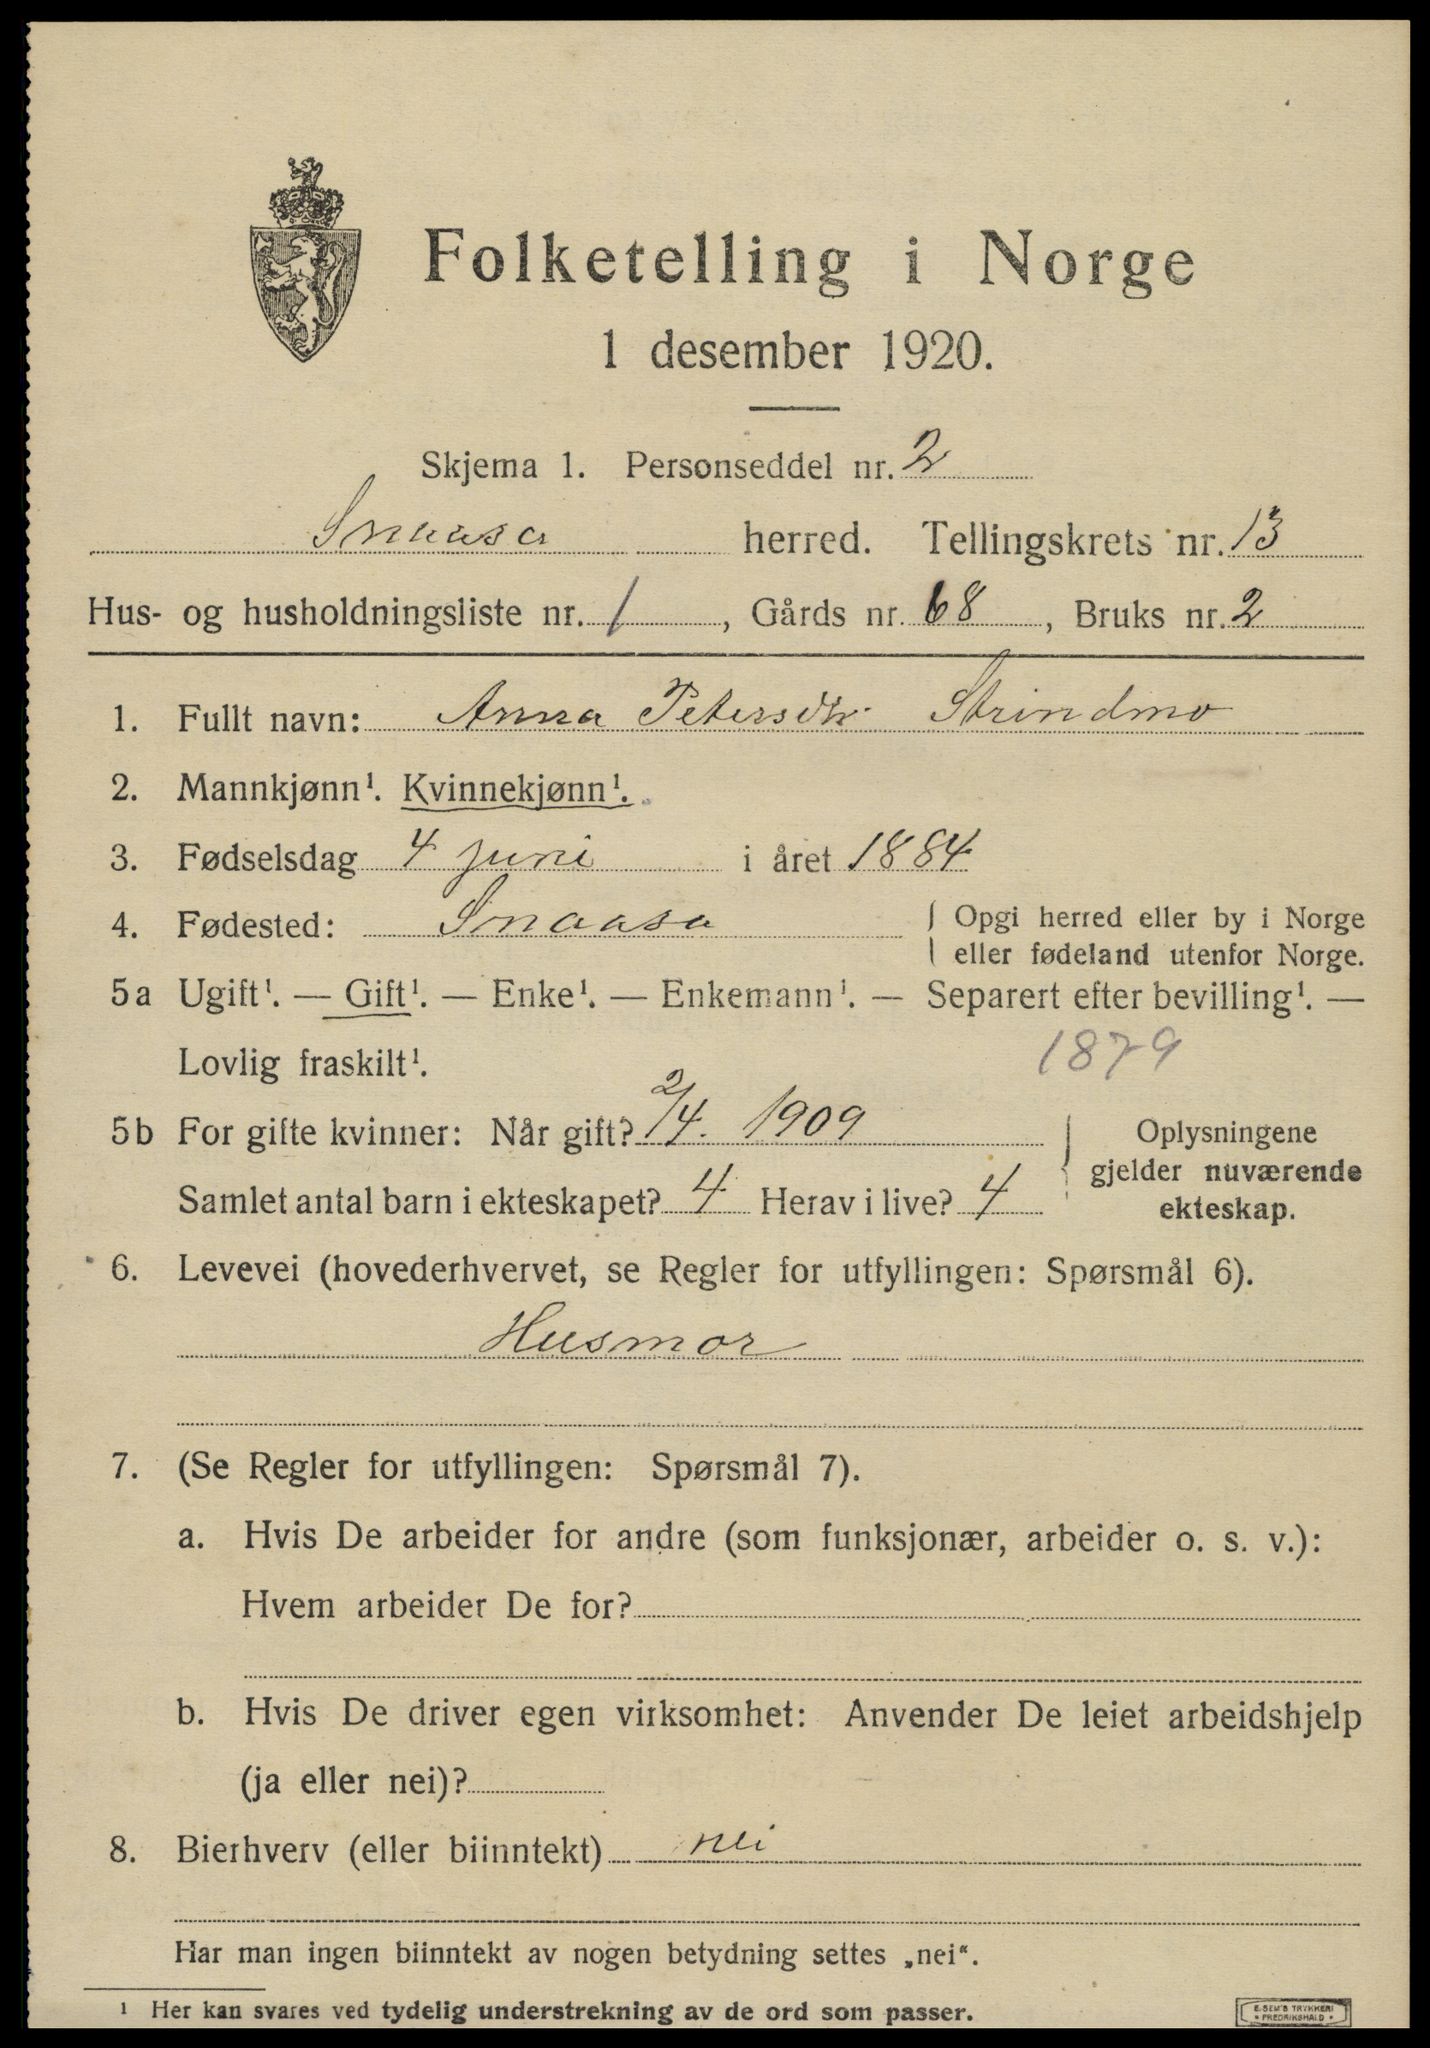 Folketelling i Norge
1 desember 1920.
Skjema 1. Personseddel nr. 2
Snaasa herred. Tellingskrets nr. 13
Hus- og husholdningsliste nr. 1, Gårds nr. 68, Bruks nr. 2
1. Fullt navn: Anna Petersdtr. Strindmo
2. Mannkjønn¹. Kvinnekjønn¹.
3. Fødselsdag 4 juni i året 1884
4. Fødested: Snaasa { Opgi herred eller by i Norge
eller fødeland utenfor Norge.
5a Ugift¹. — Gift¹. — Enke¹. — Enkemann¹. — Separert efter bevilling¹. —
Lovlig fraskilt¹. 1879
5b For gifte kvinner: Når gift? 2/4. 1909
Samlet antal barn i ekteskapet? 4 Herav i live? 4
Oplysningene
gjelder nuværende
ekteskap.
6. Levevei (hovederhvervet, se Regler for utfyllingen: Spørsmål 6).
Husmor
7. (Se Regler for utfyllingen: Spørsmål 7).
a. Hvis De arbeider for andre (som funksjonær, arbeider o. s. v.):
Hvem arbeider De for?
b. Hvis De driver egen virksomhet: Anvender De leiet arbeidshjelp
(ja eller nei)?
8. Bierhverv (eller biinntekt) nei
Har man ingen biinntekt av nogen betydning settes „nei“.
¹ Her kan svares ved tydelig understrekning av de ord som passer.
E. SEM'S TRYKKERI
* FREDRIKSHALD *